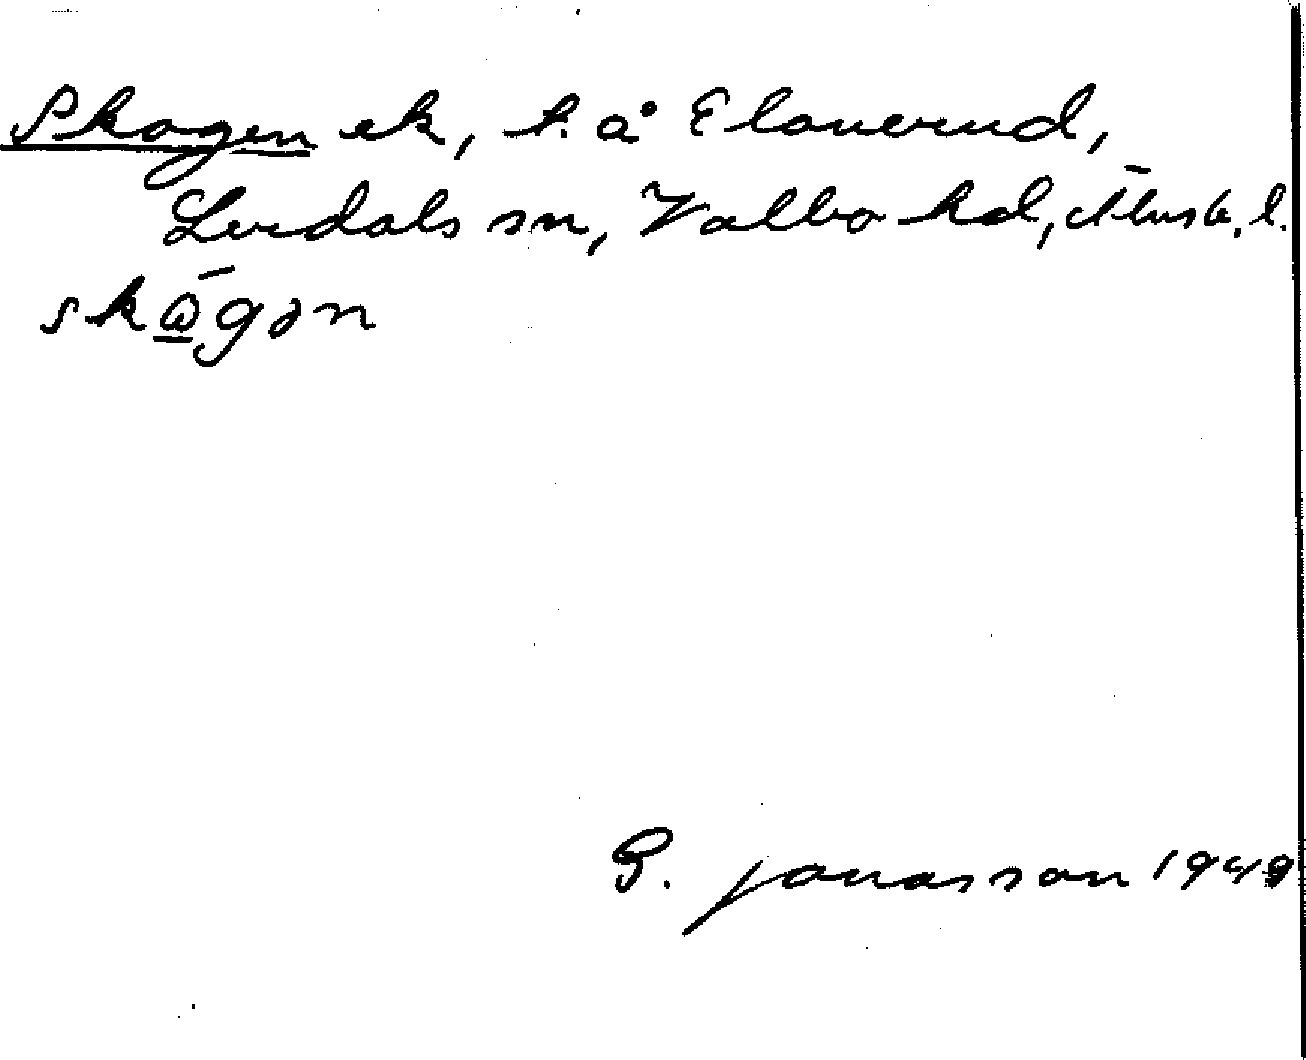 Skogen ek, t. å Eloverud,
Lerdals sn, Valbo hd, Älvsb. l.
skω̄gən
G. Jonasson 1949